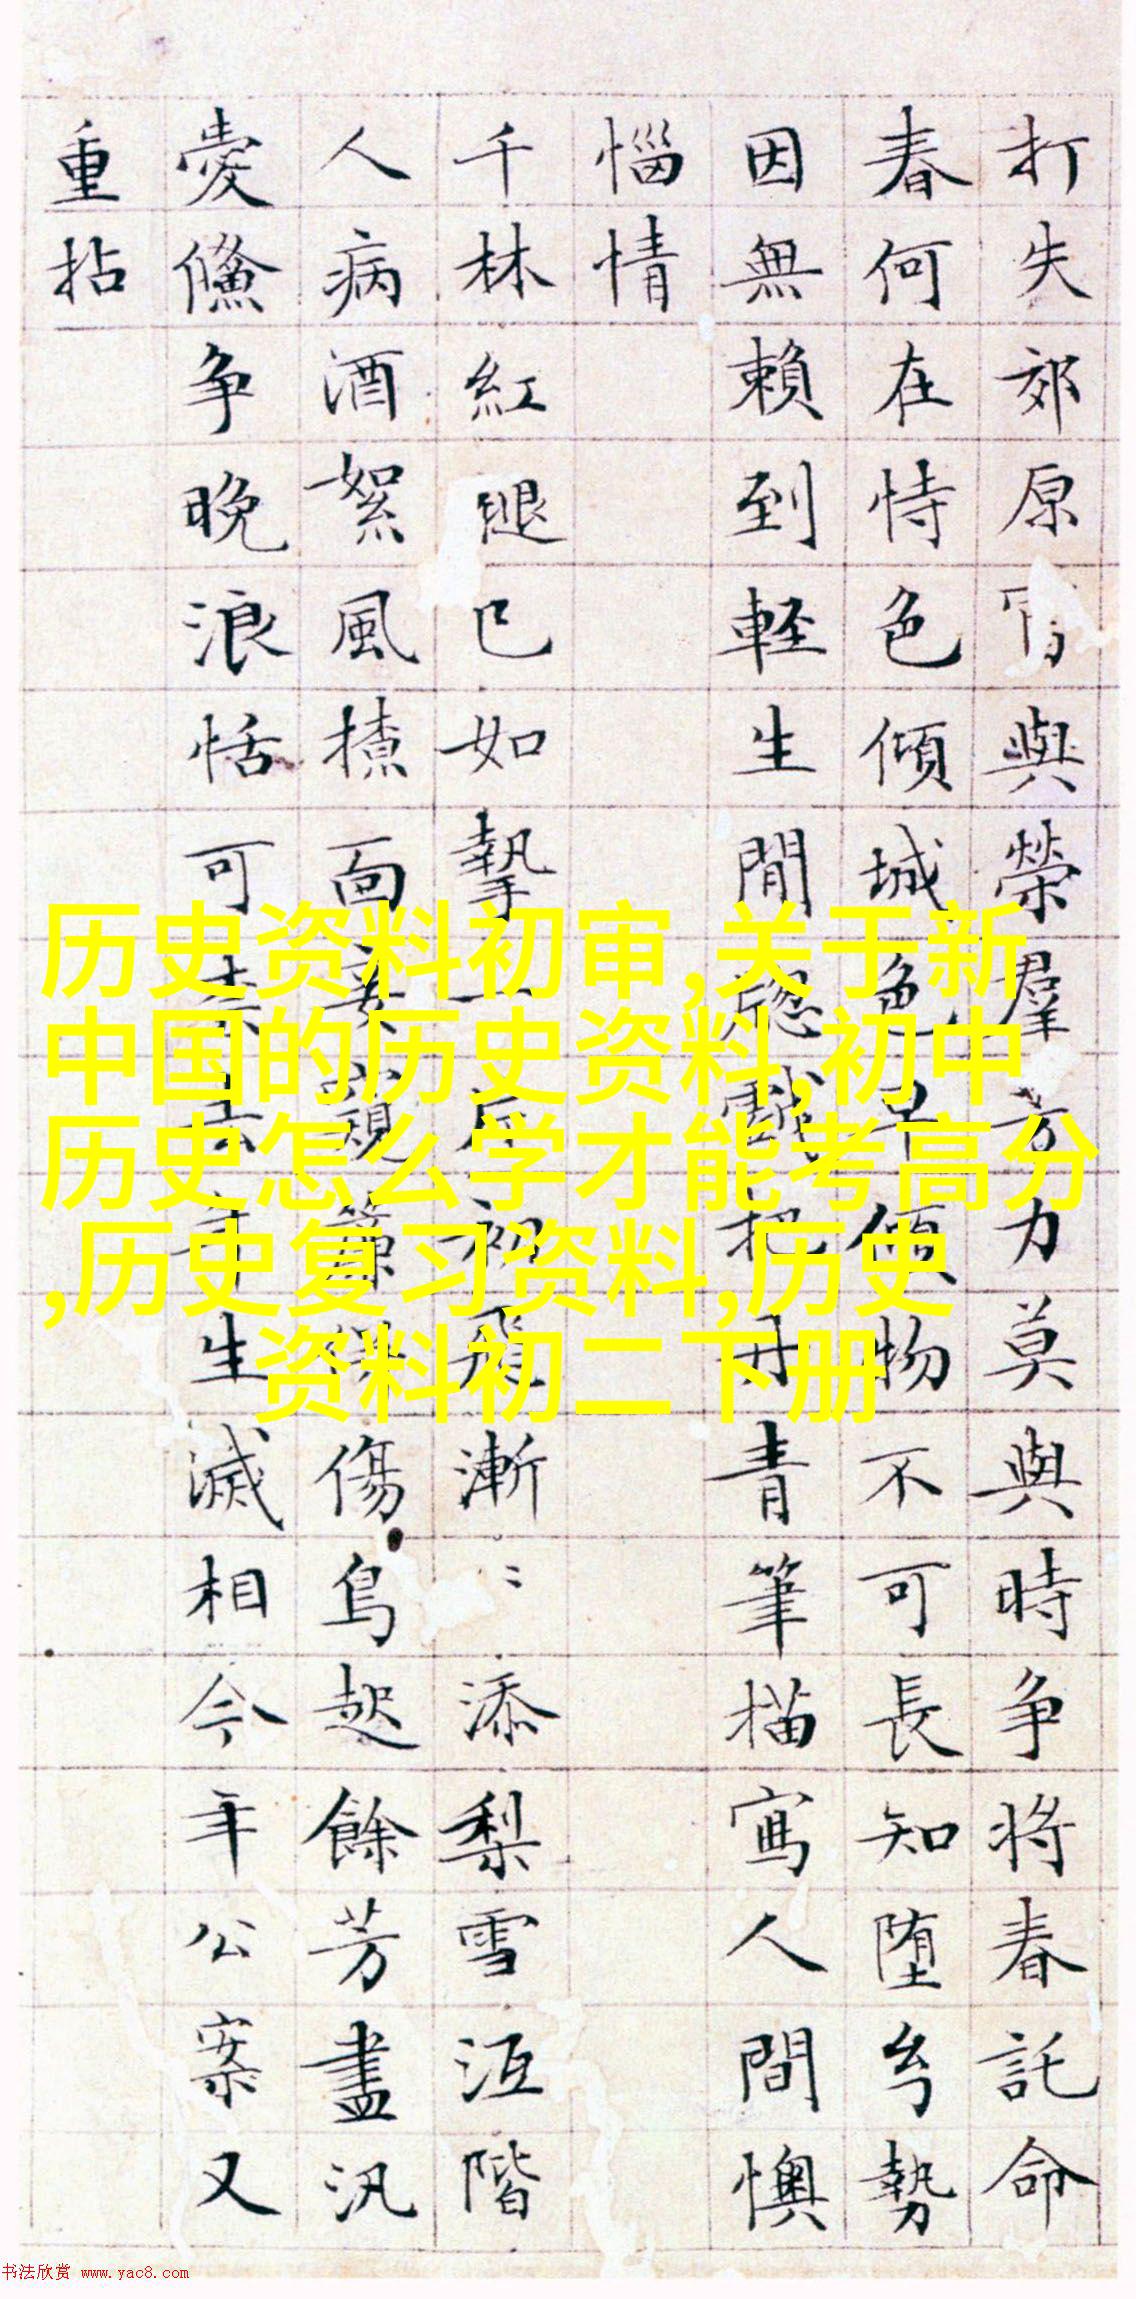 打失郊原與榮羣芳力莫與時争将春託命
春何在恃色傾城色早傾物不可長知堕勢
因無賴到輕生閒愁戲把丹青筆描寫人間懊
惱情
千林紅腿已如初飛漸〻添梨雪沍階
人病酒絮風揸面傷鳥起餘芳盡汎
愛争晚浪恬可去年生滅相今年公案又
重拈
历史资料初审,关于新
中国的历史资料,初中
历史怎么学才能考高分
,历史复习资料,历史
资料初二下册
书法欣赏 www.yac8.com